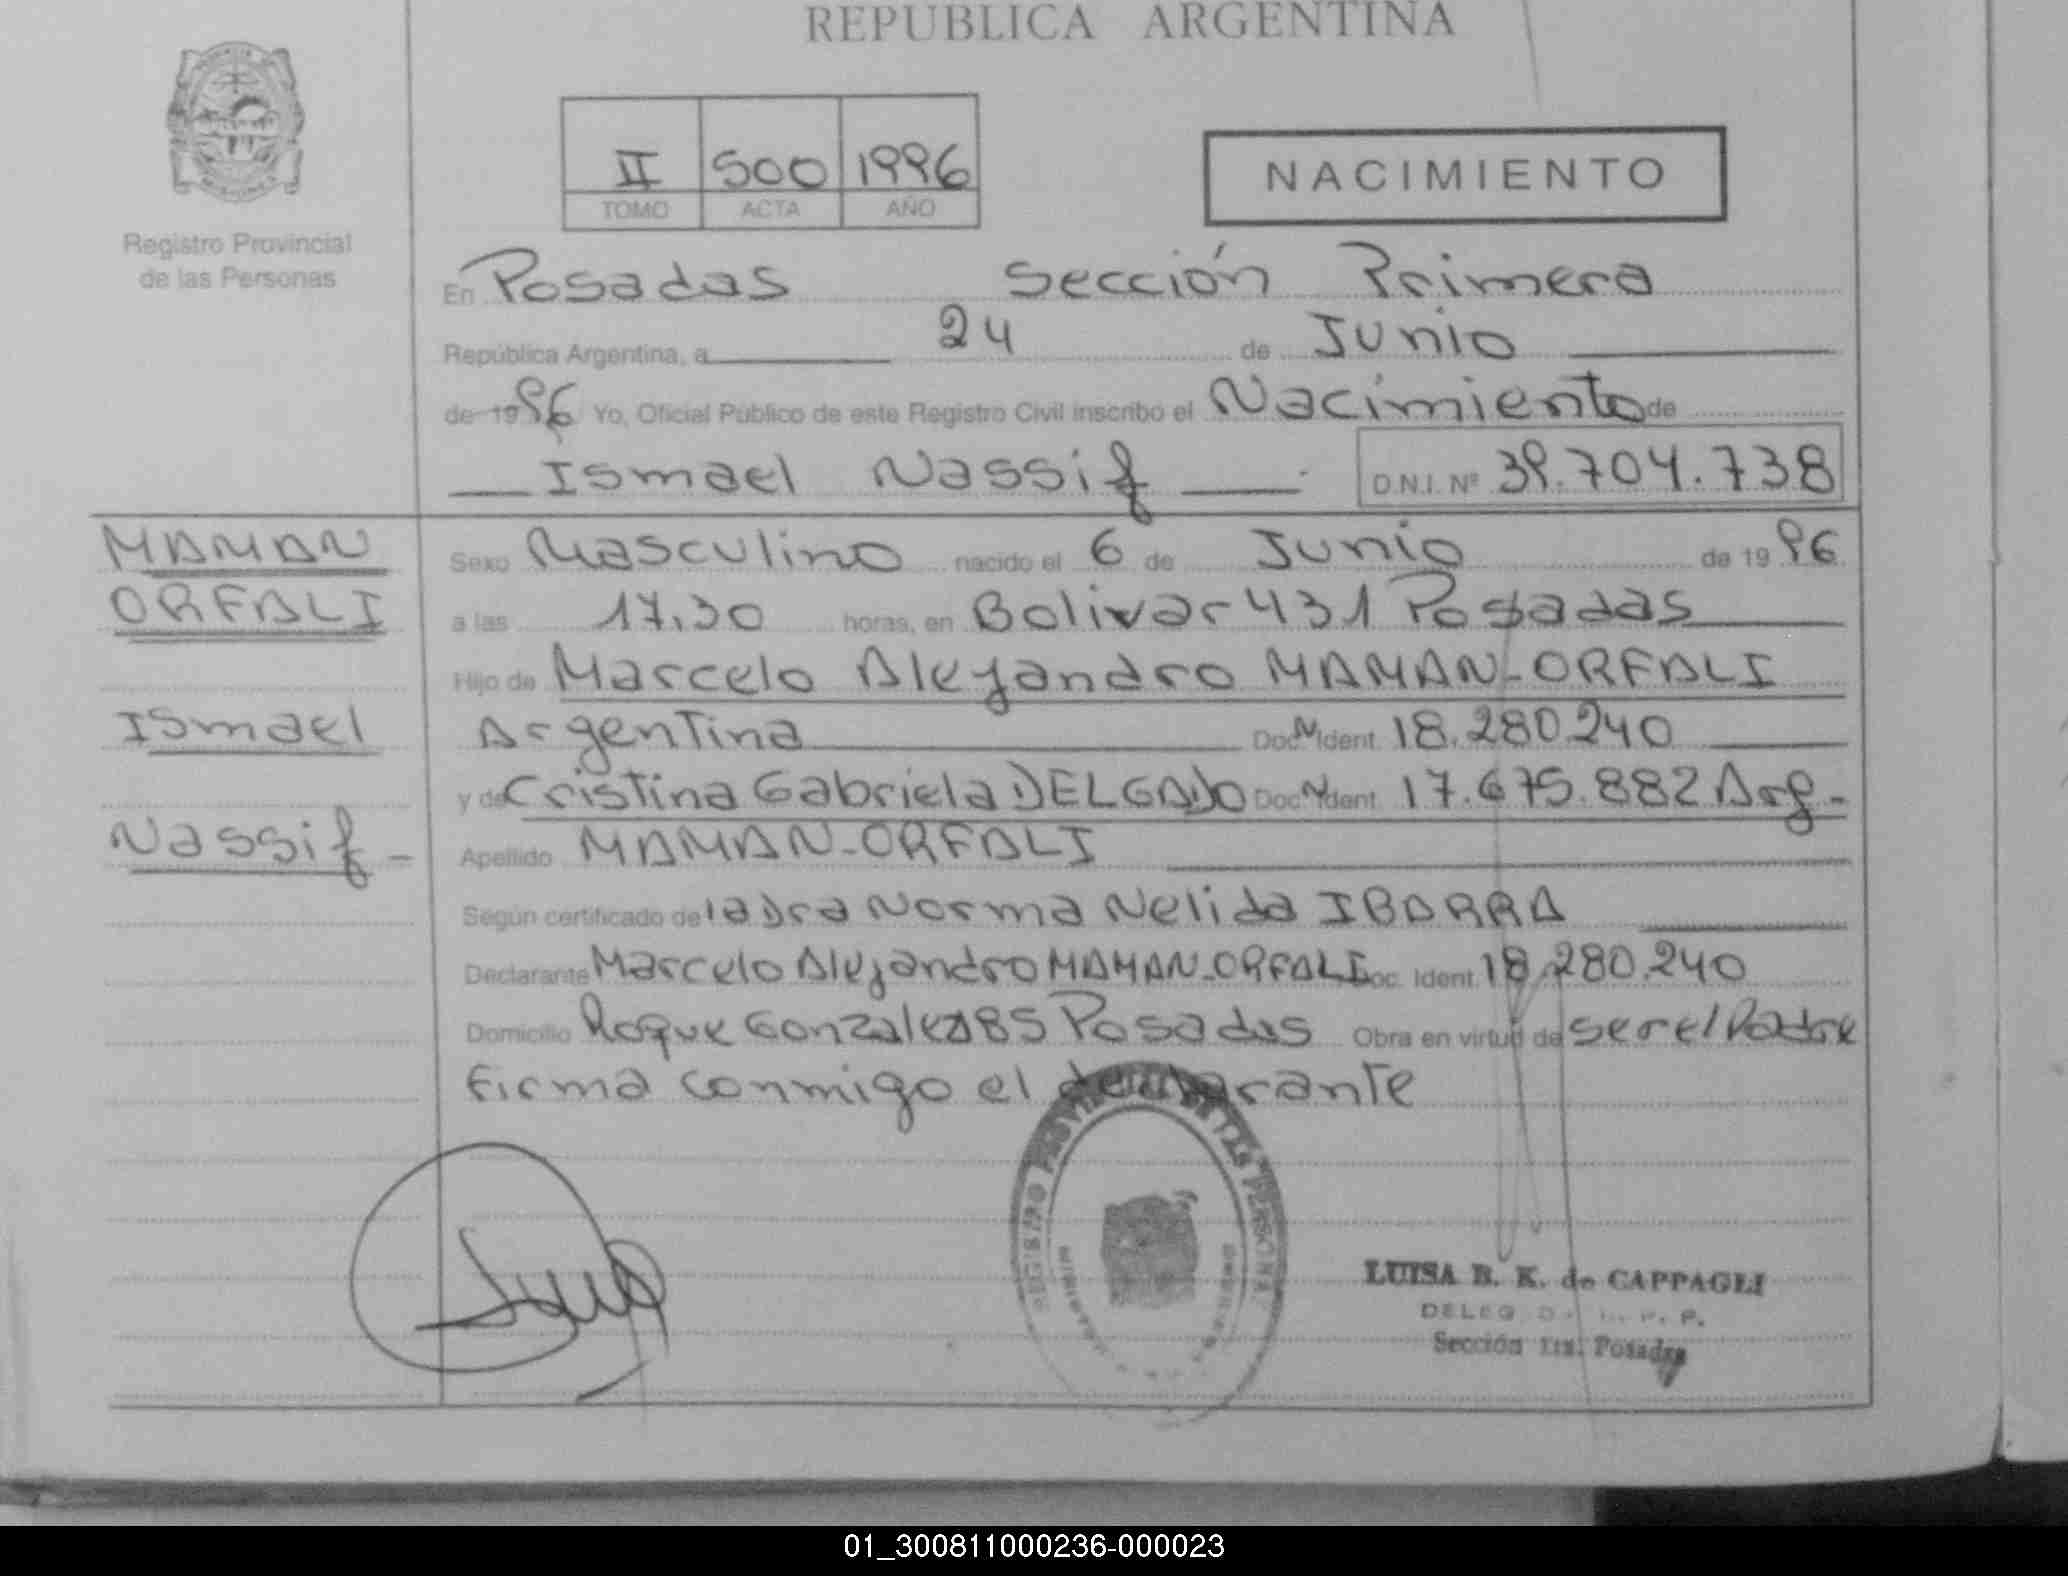 REPUBLICA ARGENTINA
Registro Provincial
de las Personas
II 500 1996
TOMO ACTA AÑO
NACIMIENTO
En Posadas Sección Primera
República Argentina, a 24 de Junio
de 1996 Yo, Oficial Público de este Registro Civil inscribo el Nacimiento de
Ismael Nassif D.N.I. Nº 39.704.738
MAMAN
ORFALI
Ismael
Nassif
Sexo Masculino nacido el 6 de Junio de 1996
a las 17,30 horas, en Bolivar 431 Posadas
Hijo de Marcelo Alejandro MAMAN-ORFALI
Argentina Doc. N Ident. 18.280.240
y de Cristina Gabriela DELGADO Doc. N Ident. 17.675.882 Arg-
Apellido MAMAN-ORFALI
Según certificado de la Dra Norma Nelida IBARRA
Declarante Marcelo Alejandro MAMAN-ORFALI Doc. Ident. 18.280.240
Domicilio Roque Gonzalez 85 Posadas Obra en virtud de ser el Padre
Firma conmigo el declarante
REGISTRO PROVINCIAL DE LAS PERSONAS
LUISA B. K. de CAPPAGLI
Sección 1ra. Posadas
01_300811000236-000023